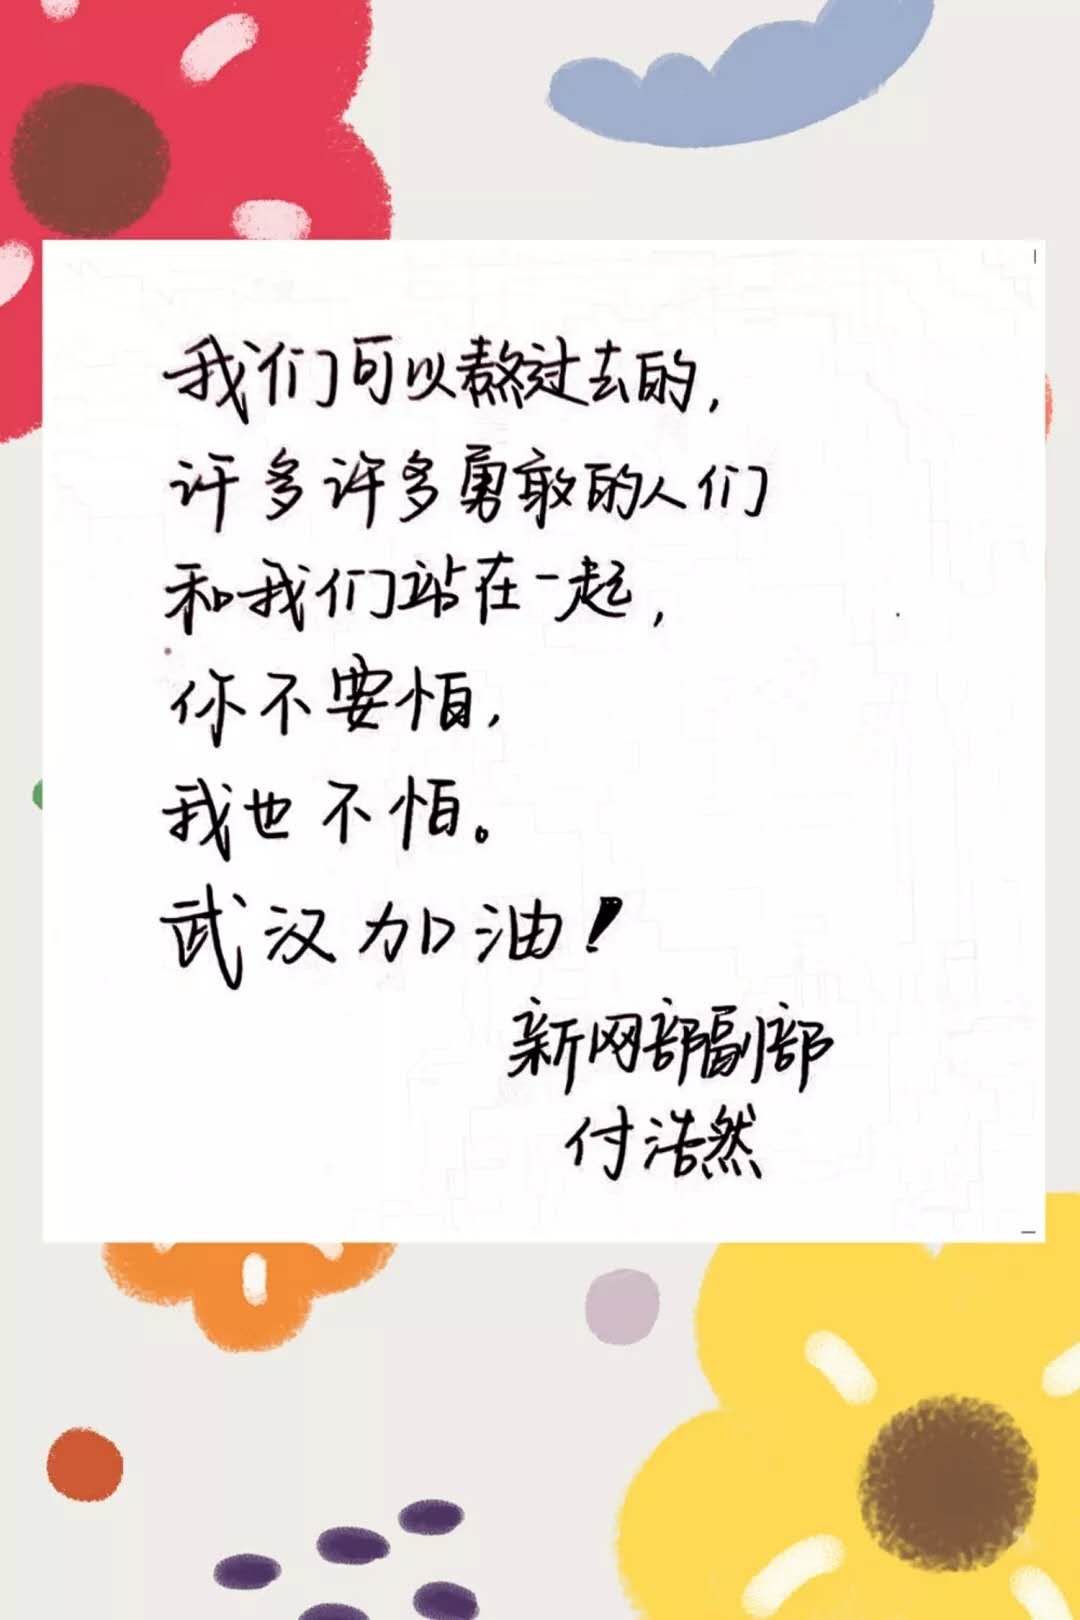 我们可以熬过去的，
许多许多勇敢的人们
和我们站在一起，
你不要怕，
我也不怕。
武汉加油！
新网部副部
付浩然